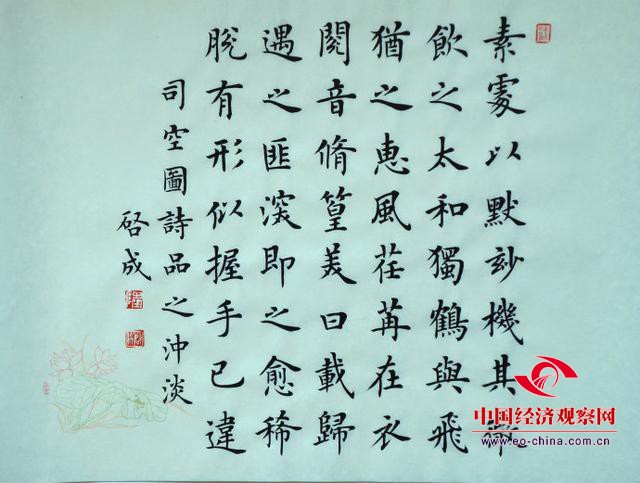 素處以默妙機其微
飲之太和獨鶴與飛
猶之惠風荏苒在衣
閱音脩篁美曰載歸
遇之匪深即之愈稀
脫有形似握手已違
司空圖詩品之沖淡
啓成
中国经济观察网
www.eo-china.com.cn